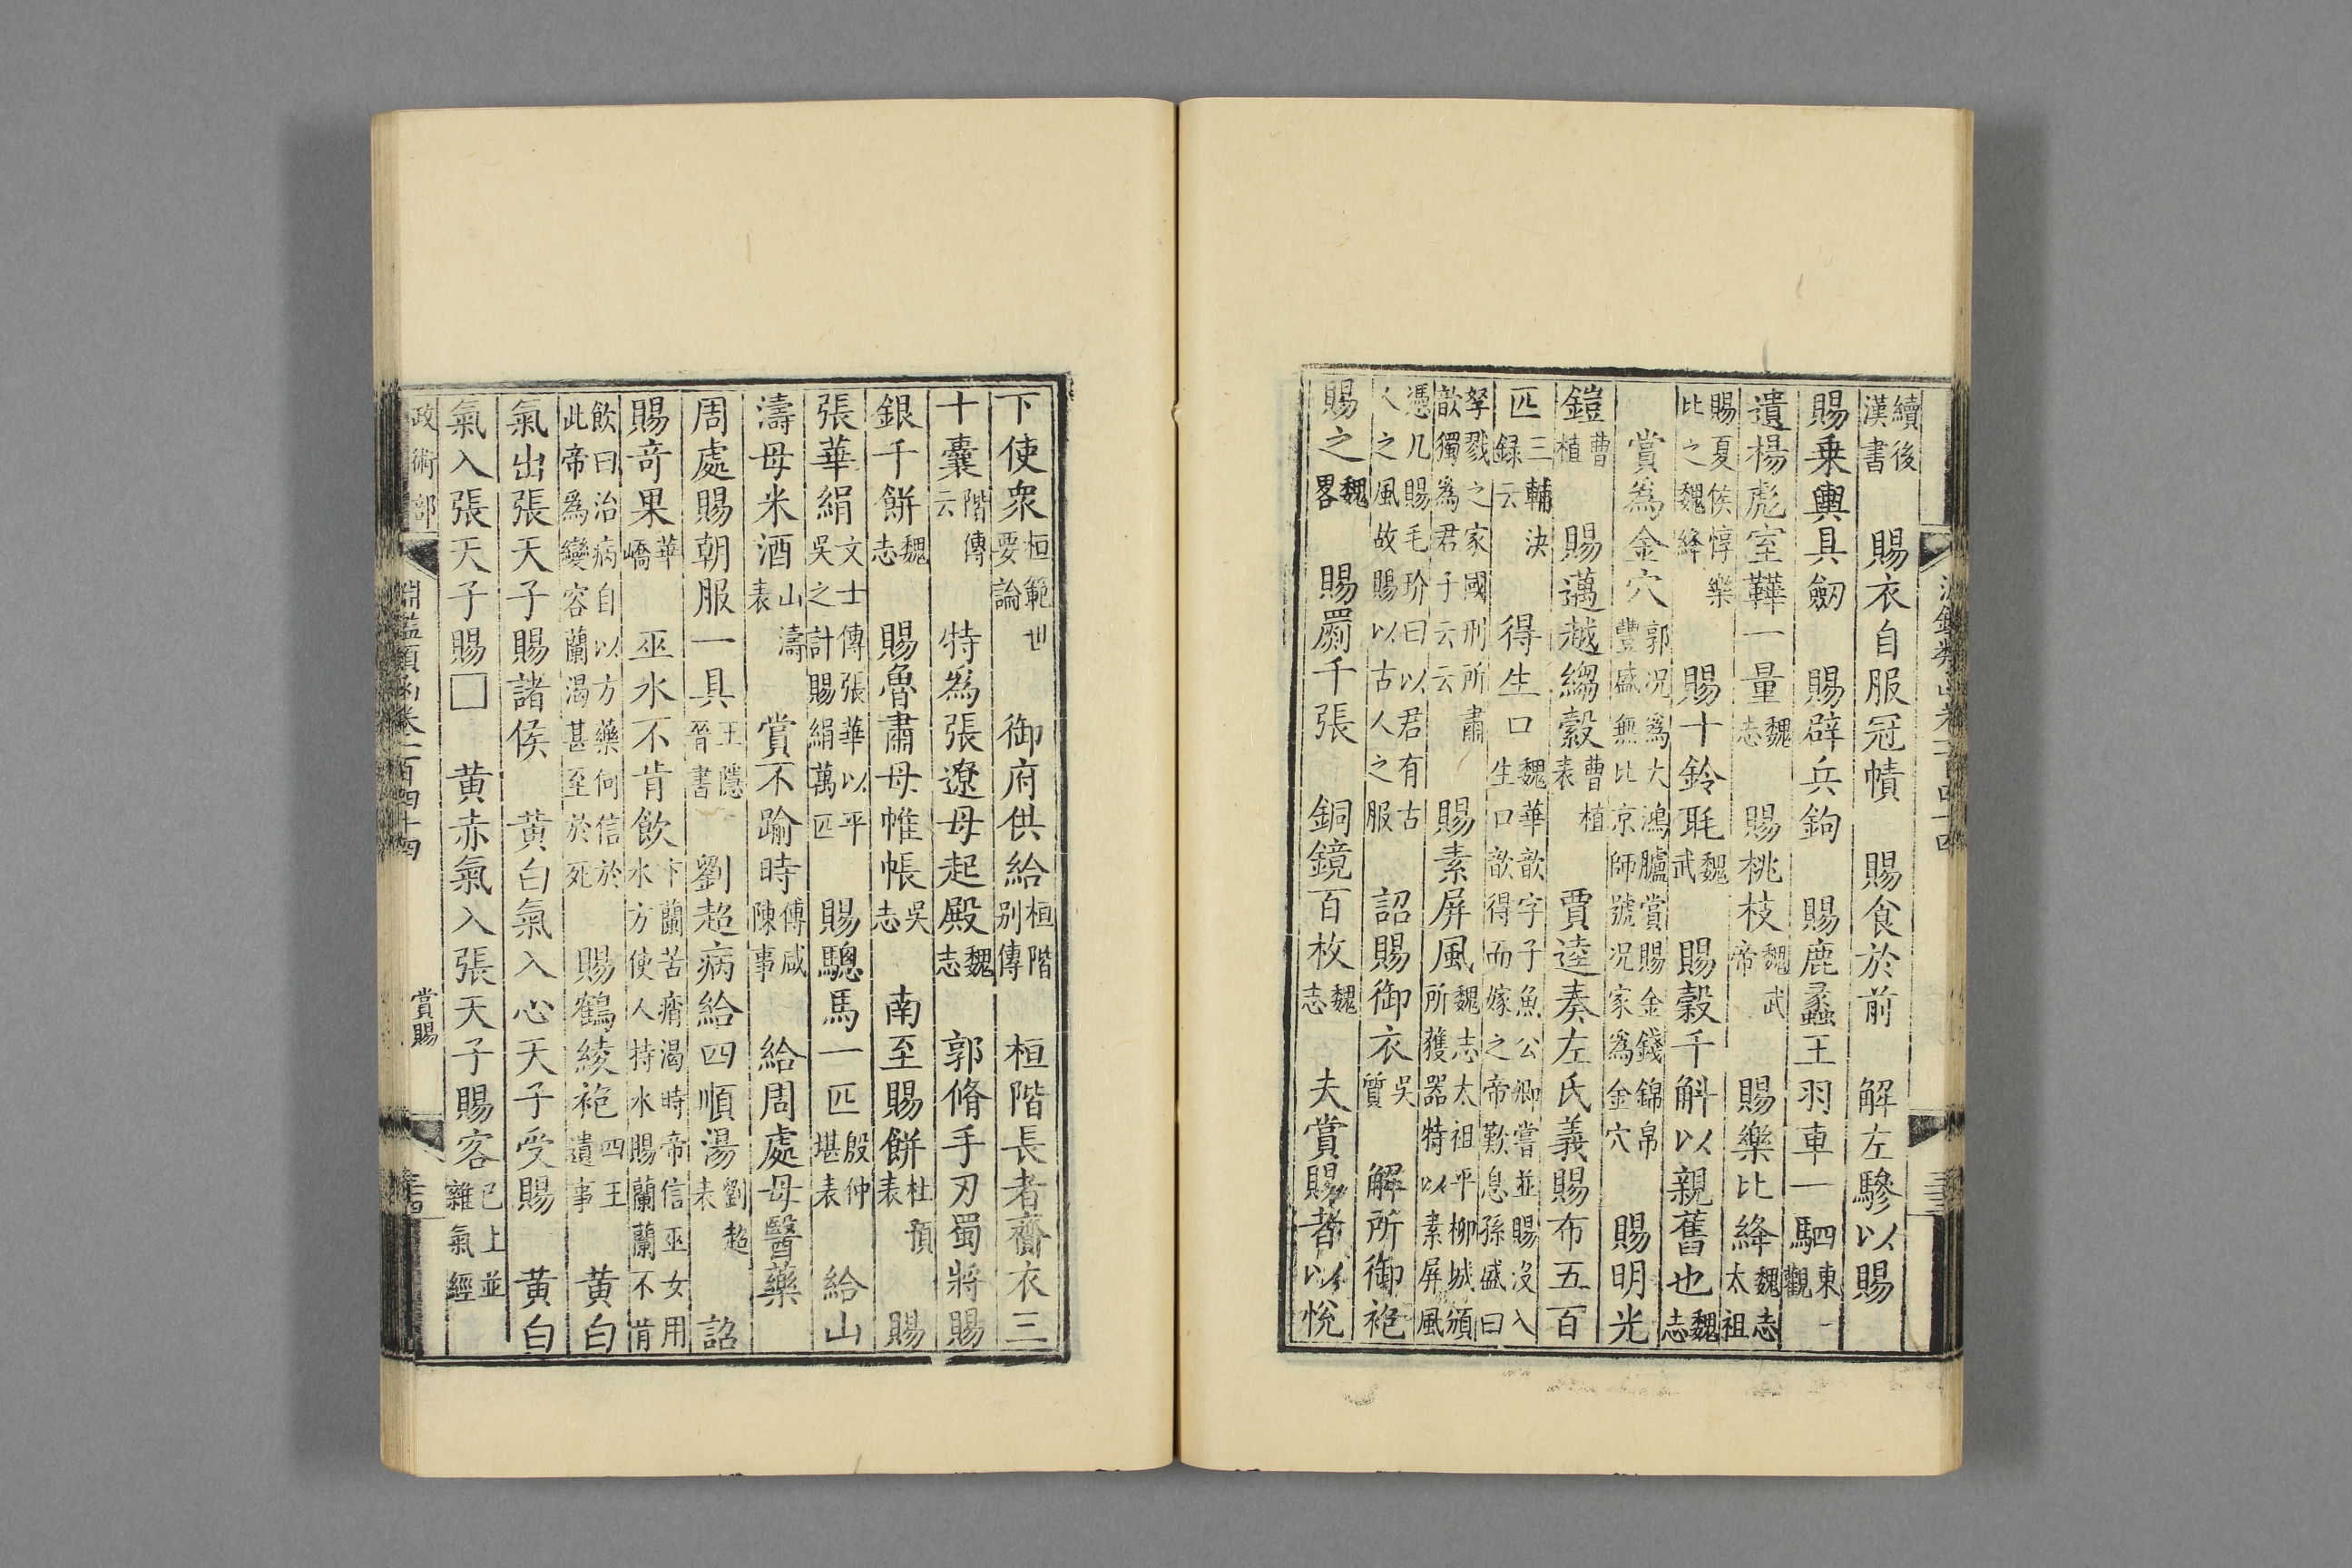 續後漢書 賜衣自服冠幘 賜食於前 解左驂以賜
賜乗輿具劒 賜辟兵鉤 賜鹿蠡王羽車一駟東觀
遺楊彪室鞾一量魏志 賜桃枝魏武帝 賜樂比絳魏志太祖
賜夏侯惇樂比之魏絳 賜十鈴毦魏武 賜穀千斛以親舊也魏志
賞為金穴郭况為大鴻臚賞賜金錢錦帛豐盛無比京師號况家為金穴 賜明光
鎧曹植 賜邁越縐縠曹植表 賈逵奏左氏義賜布五百
匹三輔決録云 得生口魏華歆字子魚公卿嘗並賜沒入生口歆得而嫁之帝歎息孫盛曰
孥戮之家國刑所肅歆獨為君子云云 賜素屏風魏志太祖平柳城頒所獲器特以素屏風
憑几賜毛玠曰以君有古人之風故賜以古人之服 詔賜御衣吳質 解所御袍
賜之魏畧 賜罽千張 銅鏡百枚魏志 夫賞賜者以悅
下使衆桓範世要論 御府供給桓階别傳 桓階長者齎衣三
十囊階傳云 特為張遼母起殿魏志 郭脩手刃蜀將賜
銀千餅魏志 賜魯肅母帷帳吳志 南至賜餅杜預表 賜
張華絹文士傳張華以平吳之計賜絹萬匹 賜驄馬一匹殷仲堪表 給山
濤母米酒山濤表 賞不踰時傅咸陳事 給周處母醫藥
周處賜朝服一具王隱晉書 劉超病給四順湯劉超表 詔
賜竒果華嶠 巫水不肯飲卞蘭苦痟渴時帝信巫女用水方使人持水賜蘭蘭不肯
飲曰治病自以方藥何信於此帝為變容蘭渴甚至於死 賜鶴綾袍四王遺事 黄白
氣出張天子賜諸侯 黄白氣入心天子受賜 黄白
氣入張天子賜□ 黄赤氣入張天子賜客已上並雜氣經
政術部 淵鑑類函卷二百四十四 賞賜